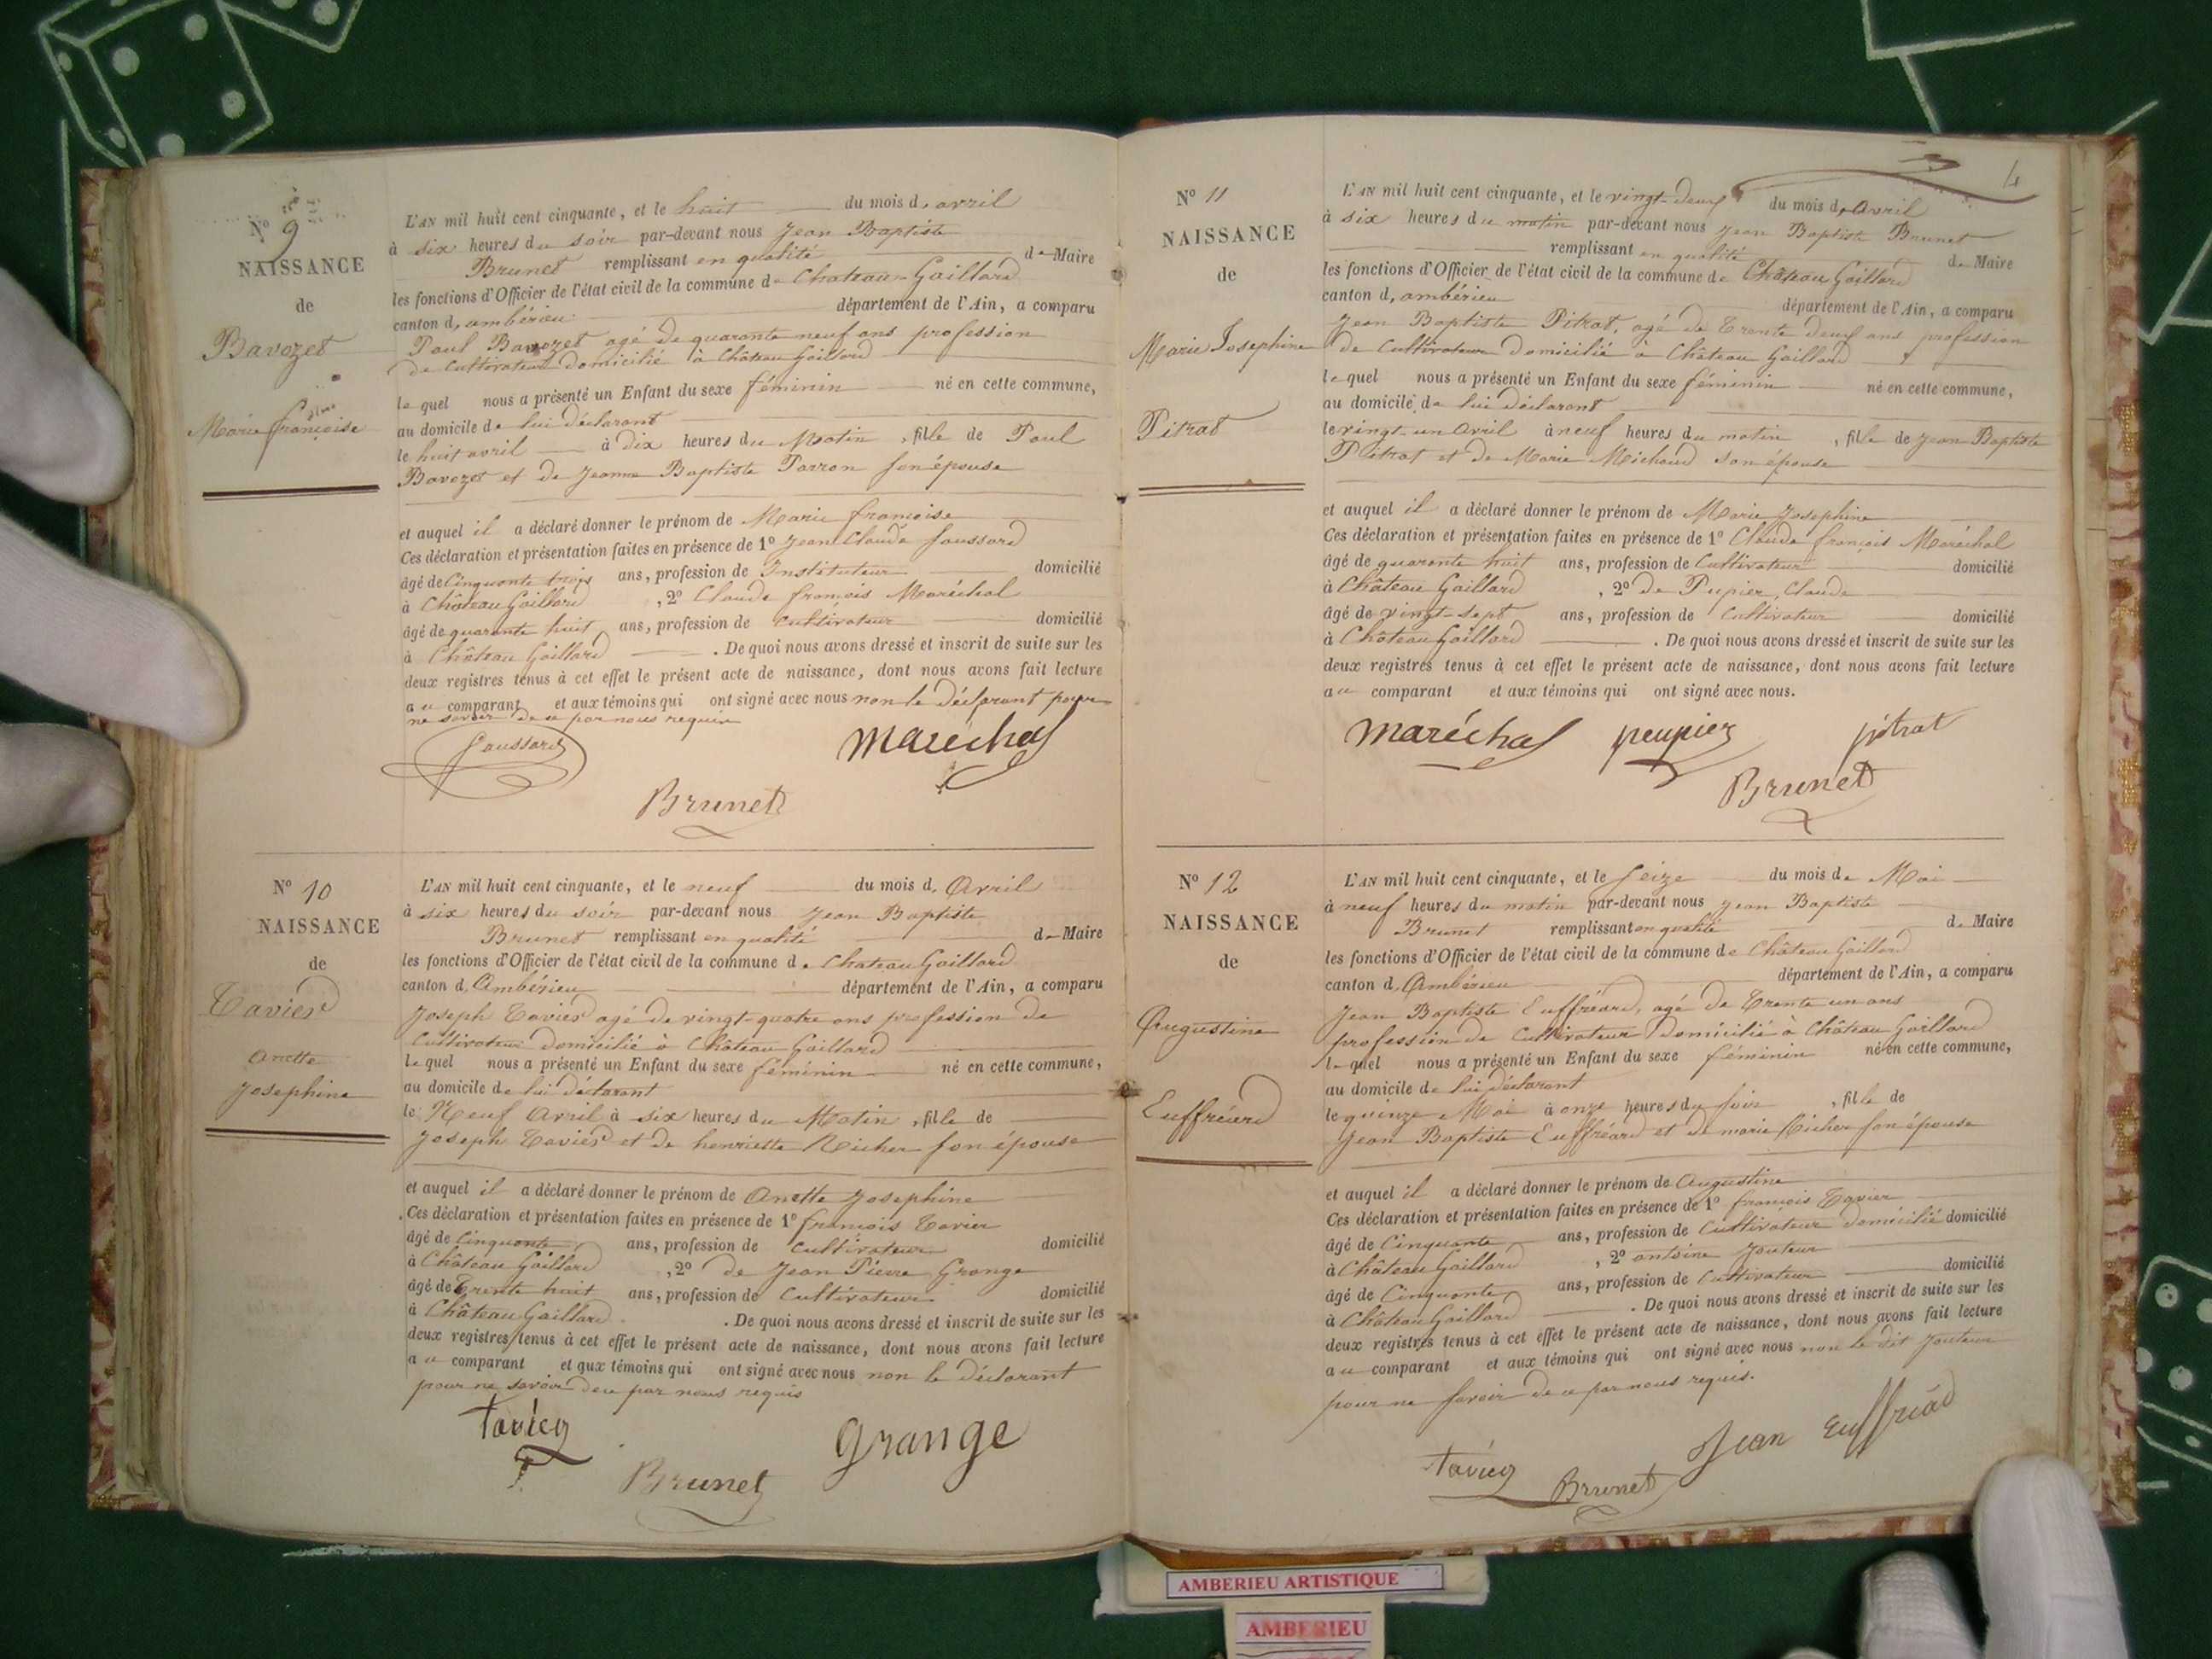 N° 9
NAISSANCE
de
Bavozet
Marie françoise
L'AN mil huit cent cinquante, et le huit du mois d'avril
à six heures du soir par-devant nous Jean Baptiste
Brunet remplissant en qualité de Maire
les fonctions d'Officier de l'état civil de la commune de Chateau-Gaillard
canton d'ambérieu département de l'Ain, a comparu
Paul Bavozet agé de quarante neuf ans profession
de Cultivateur domicilié à Château Gaillard
lequel nous a présenté un Enfant du sexe féminin né en cette commune,
au domicile de lui déclarant
le huit avril à dix heures du Matin, fille de Paul
Bavozet et de Jeanne Baptiste Parron son épouse
et auquel il a déclaré donner le prénom de Marie françoise
Ces déclaration et présentation faites en présence de 1° Jean Claude foussard
âgé de Cinquante trois ans, profession de Instituteur domicilié
à Château Gaillard, 2° Claude françois Maréchal
âgé de quarante huit ans, profession de Cultivateur domicilié
à Château Gaillard. De quoi nous avons dressé et inscrit de suite sur les
deux registres tenus à cet effet le présent acte de naissance, dont nous avons fait lecture
au comparant et aux témoins qui ont signé avec nous non le déclarant pour
ne savoir de ce par nous requis
foussard maréchal
Brunet
N° 10
NAISSANCE
de
Tavier
Anette
Josephine
L'AN mil huit cent cinquante, et le neuf du mois d'Avril
à six heures du soir par-devant nous Jean Baptiste
Brunet remplissant en qualité de Maire
les fonctions d'Officier de l'état civil de la commune de Chateau Gaillard
canton d'Ambérieu département de l'Ain, a comparu
Joseph Tavier agé de vingt-quatre ans profession de
Cultivateur domicilié à Château Gaillard
lequel nous a présenté un Enfant du sexe féminin né en cette commune,
au domicile de lui déclarant
le Neuf Avril à six heures du Matin, fille de
Joseph Tavier et de henriette Richer son épouse
et auquel il a déclaré donner le prénom de Anette Josephine
Ces déclaration et présentation faites en présence de 1° françois Tavier
âgé de Cinquante ans, profession de Cultivateur domicilié
à Château Gaillard, 2° de Jean Pierre Grange
âgé de Trente huit ans, profession de Cultivateur domicilié
à Château Gaillard. De quoi nous avons dressé et inscrit de suite sur les
deux registres tenus à cet effet le présent acte de naissance, dont nous avons fait lecture
au comparant et aux témoins qui ont signé avec nous non le déclarant
pour ne savoir de ce par nous requis
tavier grange
Brunet
4
N° 11
NAISSANCE
de
Marie Josephine
Pitrat
L'AN mil huit cent cinquante, et le vingt-deux du mois d'Avril
à six heures du matin par-devant nous Jean Baptiste Brunet
remplissant en qualité de Maire
les fonctions d'Officier de l'état civil de la commune de Château Gaillard
canton d'ambérieu département de l'Ain, a comparu
Jean Baptiste Pitrat, agé de Trente deux ans profession
de Cultivateur domicilié à Château Gaillard
lequel nous a présenté un Enfant du sexe féminin né en cette commune,
au domicile de lui déclarant
le vingt-un Avril à neuf heures du matin, fille de Jean Baptiste
Pitrat et de Marie Michaud son épouse
et auquel il a déclaré donner le prénom de Marie Josephine
Ces déclaration et présentation faites en présence de 1° Claude françois Maréchal
âgé de quarante huit ans, profession de Cultivateur domicilié
à Château Gaillard, 2° de Pupier, Claude
âgé de vingt-sept ans, profession de Cultivateur domicilié
à Château Gaillard. De quoi nous avons dressé et inscrit de suite sur les
deux registres tenus à cet effet le présent acte de naissance, dont nous avons fait lecture
au comparant et aux témoins qui ont signé avec nous.
maréchal peupier pitrat
Brunet
N° 12
NAISSANCE
de
Augustine
Euffréard
L'AN mil huit cent cinquante, et le seize du mois de Mai
à neuf heures du matin par-devant nous Jean Baptiste
Brunet remplissant en qualité de Maire
les fonctions d'Officier de l'état civil de la commune de Château Gaillard
canton d'Ambérieu département de l'Ain, a comparu
Jean Baptiste Euffréard, agé de Trente un ans
profession de Cultivateur domicilié à Château Gaillard
lequel nous a présenté un Enfant du sexe féminin né en cette commune,
au domicile de lui déclarant
le quinze Mai à onze heures du soir, fille de
Jean Baptiste Euffréard et de marie Richer son épouse
et auquel il a déclaré donner le prénom de Augustine
Ces déclaration et présentation faites en présence de 1° françois Tavier
âgé de Cinquante ans, profession de Cultivateur domicilié domicilié
à Château Gaillard, 2° antoine Jouteur
âgé de Cinquante ans, profession de Cultivateur domicilié
à Château Gaillard. De quoi nous avons dressé et inscrit de suite sur les
deux registres tenus à cet effet le présent acte de naissance, dont nous avons fait lecture
au comparant et aux témoins qui ont signé avec nous non le dit Jouteur
pour ne savoir de ce par nous requis.
tavier Brunet Jean Euffréad
AMBERIEU ARTISTIQUE
AMBERIEU